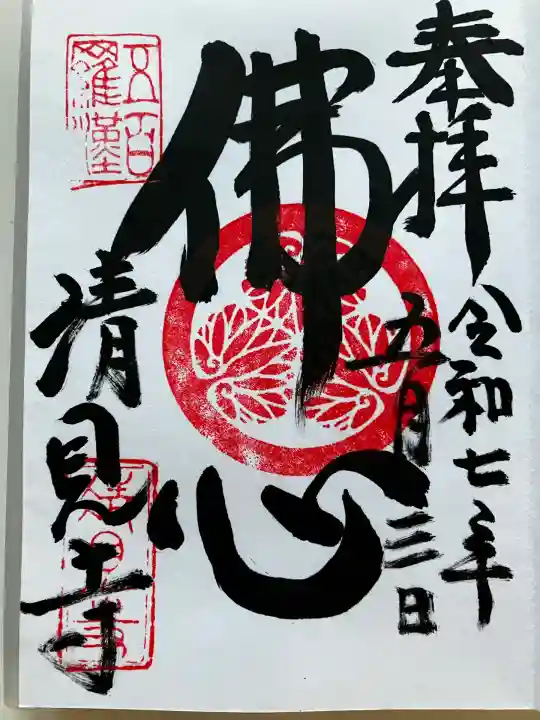 奉拝
令和七年
五月三日
佛心
五百
羅漢
清見寺
清見寺